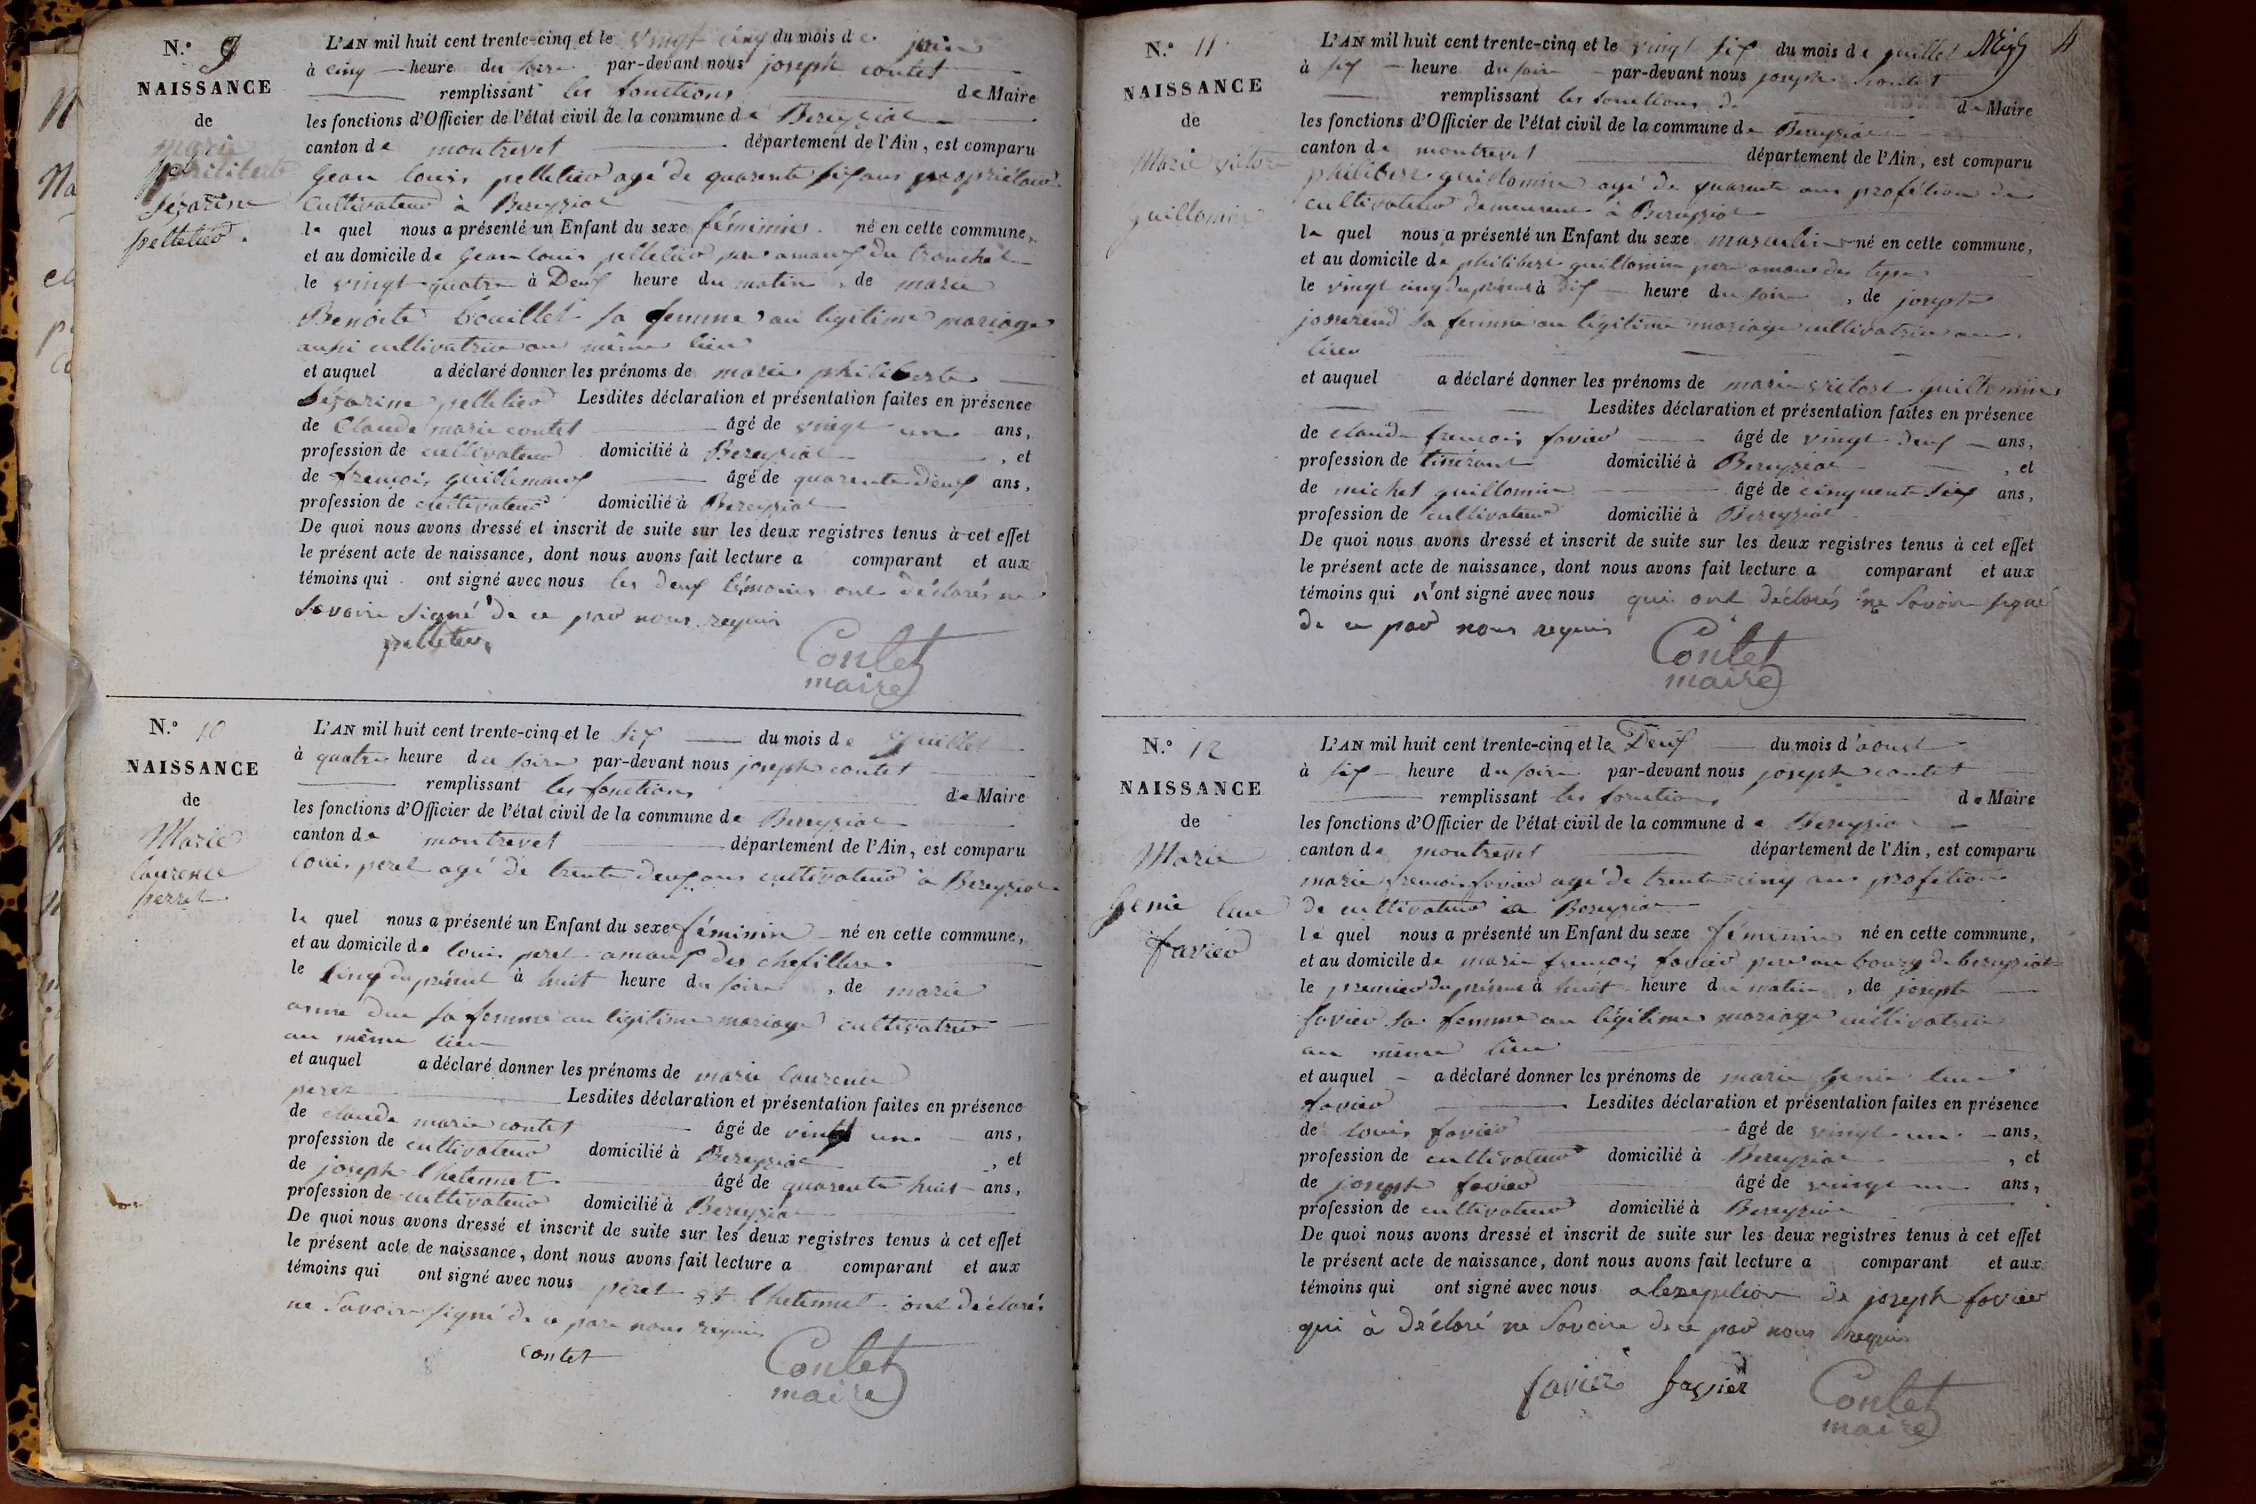 N.° 9
NAISSANCE
de
marie
philiberte
Sézarine
pelletier.
L'AN mil huit cent trente-cinq et le vingt cinq du mois de juin
à cinq heure du soir par-devant nous joseph contet
remplissant les fonctions de Maire
les fonctions d'Officier de l'état civil de la commune de Bereyziat
canton de montrevet département de l'Ain, est comparu
Gean louis pelletier agé de quarente six ans propriétaire
cultivateur à Bereyziat
le quel nous a présenté un Enfant du sexe féminin né en cette commune,
et au domicile de Gean louis pelletier pere amauf du tronchet
le vingt quatre à Deuf heure du matin, de marie
Benoite bouillet sa femme au legitime mariage
aussi cultivatrice au même lieu
et auquel a déclaré donner les prénoms de marie philiberte
Sézarine pelletier Lesdites déclaration et présentation faites en présence
de Claude marie contet âgé de vingt un ans,
profession de cultivateur domicilié à Bereyziat, et
de francois guillemauf âgé de quarente deuf ans,
profession de cultivateur domicilié à Bereyziat
De quoi nous avons dressé et inscrit de suite sur les deux registres tenus à cet effet
le présent acte de naissance, dont nous avons fait lecture a comparant et aux
témoins qui ont signé avec nous les deuf témoins ont déclarés ne
Savoir Signé de ce par nous requis
pelletier
Contet
maire
N.° 10
NAISSANCE
de
Marie
laurence
perret
L'AN mil huit cent trente-cinq et le Six du mois de Juillet
à quatre heure du soire par-devant nous joseph contet
remplissant les fonctions de Maire
les fonctions d'Officier de l'état civil de la commune de Bereyziat
canton de montrevet département de l'Ain, est comparu
louis peret agé de trente deuf ans cultivateur à Bereyziat
le quel nous a présenté un Enfant du sexe féminin né en cette commune,
et au domicile de louis peret amauf des chefillere
le cinq du présent à huit heure du soire, de marie
anne duc sa femme au légitime mariage cultivatrice
au même lieu
et auquel a déclaré donner les prénoms de marie laurence
peret Lesdites déclaration et présentation faites en présence
de claude marie contet âgé de vingt un ans,
profession de cultivateur domicilié à Bereyziat, et
de joseph thetennet âgé de quarente huit ans,
profession de cultivateur domicilié à Bereyziat
De quoi nous avons dressé et inscrit de suite sur les deux registres tenus à cet effet
le présent acte de naissance, dont nous avons fait lecture a comparant et aux
témoins qui ont signé avec nous peret et thetennet ont déclarés
ne Savoir signé de ce pare nous requis
contet
Contet
maire
4
N.° 11
NAISSANCE
de
Marie victor
guillomin
L'AN mil huit cent trente-cinq et le vingt six du mois de juillet
à six heure du soire par-devant nous joseph contet
remplissant les fonctions de de Maire
les fonctions d'Officier de l'état civil de la commune de Bereyziat
canton de montrevet département de l'Ain, est comparu
philibert guillomin agé de quarente ans profétion de
cultivateur demeurent à Bereyziat
le quel nous a présenté un Enfant du sexe masculin né en cette commune,
et au domicile de philibert guillomin pere amau des
le vingt cinq du présent à dix heure du soire, de joseph
josserend sa femme au légitime mariage cultivatrice au
lieu
et auquel a déclaré donner les prénoms de marie victort guillomin
Lesdites déclaration et présentation faites en présence
de claude francois favier âgé de vingt deuf ans,
profession de tinérant domicilié à Bereyziat, et
de michet guillomin âgé de cinquente six ans,
profession de cultivateur domicilié à Bereyziat
De quoi nous avons dressé et inscrit de suite sur les deux registres tenus à cet effet
le présent acte de naissance, dont nous avons fait lecture a comparant et aux
témoins qui n'ont signé avec nous qui ont déclarés ne Savoir signé
de ce par nous requis
Contet
maire
N.° 12
NAISSANCE
de
Marie
Genie luce
favier
L'AN mil huit cent trente-cinq et le Deuf du mois d'aoust
à six heure du soire par-devant nous joseph contet
remplissant les fonctions de Maire
les fonctions d'Officier de l'état civil de la commune de Bereyziat
canton de montrevet département de l'Ain, est comparu
marie francois favier agé de trente cinq ans profétion
de cultivateur à Bereyziat
le quel nous a présenté un Enfant du sexe féminin né en cette commune,
et au domicile de marie francois favier pere au bourg de bereyziat
le premier du présent à huit heure du matin, de joseph
favier sa femme au légitime mariage cultivatrice
au même lieu
et auquel a déclaré donner les prénoms de marie Genie luce
favier Lesdites déclaration et présentation faites en présence
de louis favier âgé de vingt un ans,
profession de cultivateur domicilié à Bereyziat, et
de joseph favier âgé de vingt un ans,
profession de cultivateur domicilié à Bereyziat
De quoi nous avons dressé et inscrit de suite sur les deux registres tenus à cet effet
le présent acte de naissance, dont nous avons fait lecture a comparant et aux
témoins qui ont signé avec nous alexception de joseph favier
qui à déclaré ne Savoire de ce par nous requis
favier favier
Contet
maire